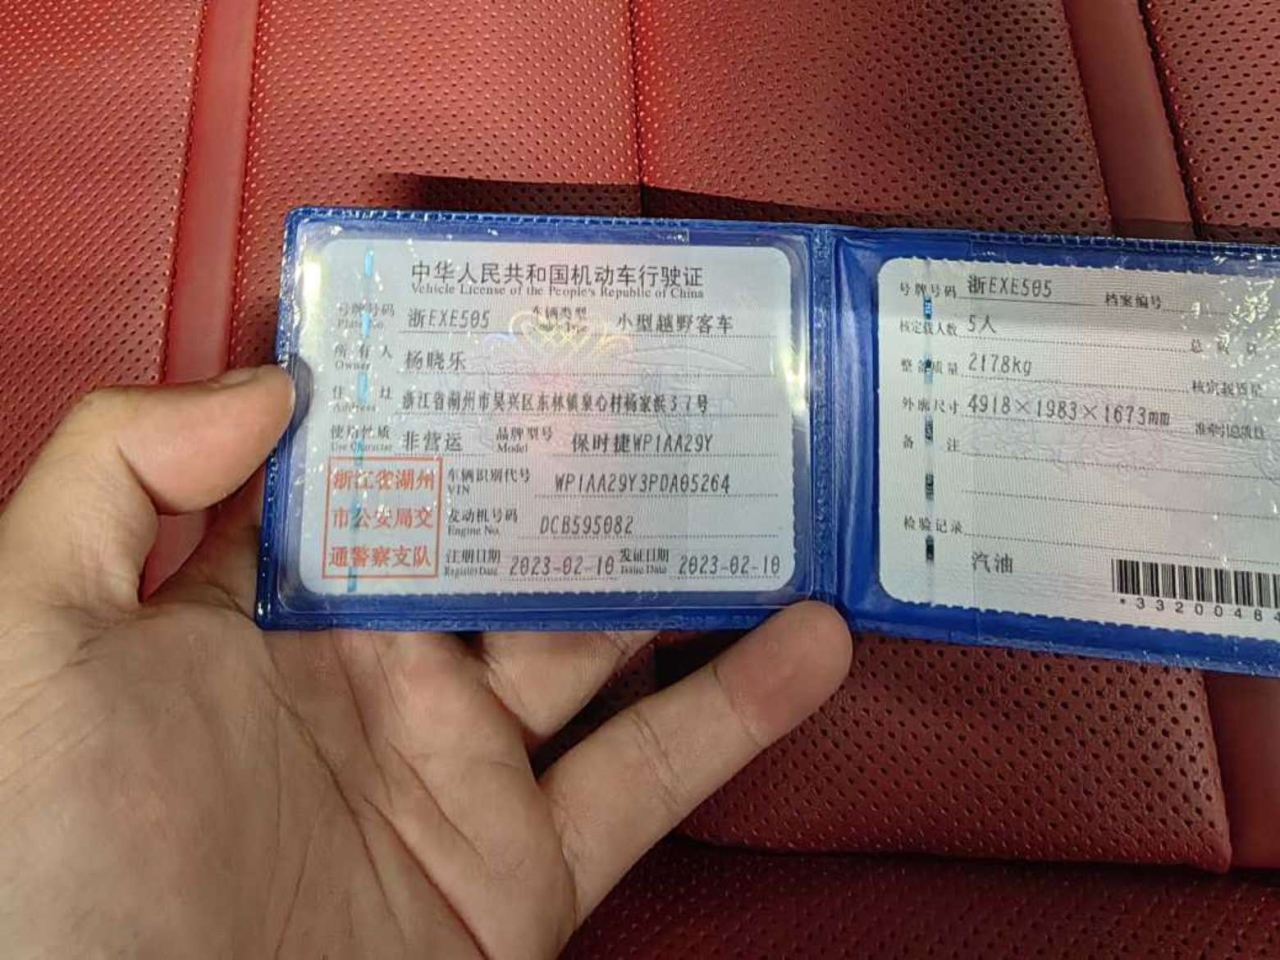 中华人民共和国机动车行驶证
Vehicle License of the People's Republic of China
号牌号码 浙EXE505 车辆类型 小型越野客车
Plate No.
所有人 杨晓乐
Owner
住址 浙江省湖州市吴兴区东林镇泉心村杨家浜37号
Address
使用性质 非营运 品牌型号 保时捷WP1AA29Y
Use Character Model
浙江省湖州
市公安局交
通警察支队
车辆识别代号 WP1AA29Y3PDA05264
VIN
发动机号码 DCB595082
Engine No.
注册日期 2023-02-10 发证日期 2023-02-10
Register Date Issue Date
号牌号码 浙EXE505 档案编号
核定载人数 5人
整备质量 2178kg 核定载质量
外廓尺寸 4918×1983×1673mm 准牵引总质量
备注
检验记录
汽油
*33200464